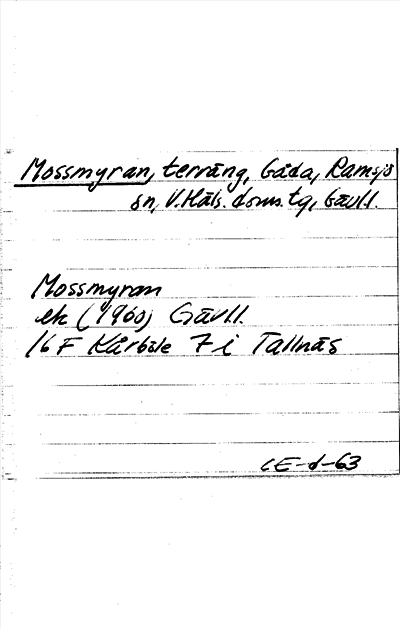 Mossmyran, terräng, Gåda, Ramsjö
sn, V.Häls. doms.tg, Gävl.l.
Mossmyran
ek (1960) Gävl.l.
16 F Kårböle 7 i Tallnäs
CE-d-63